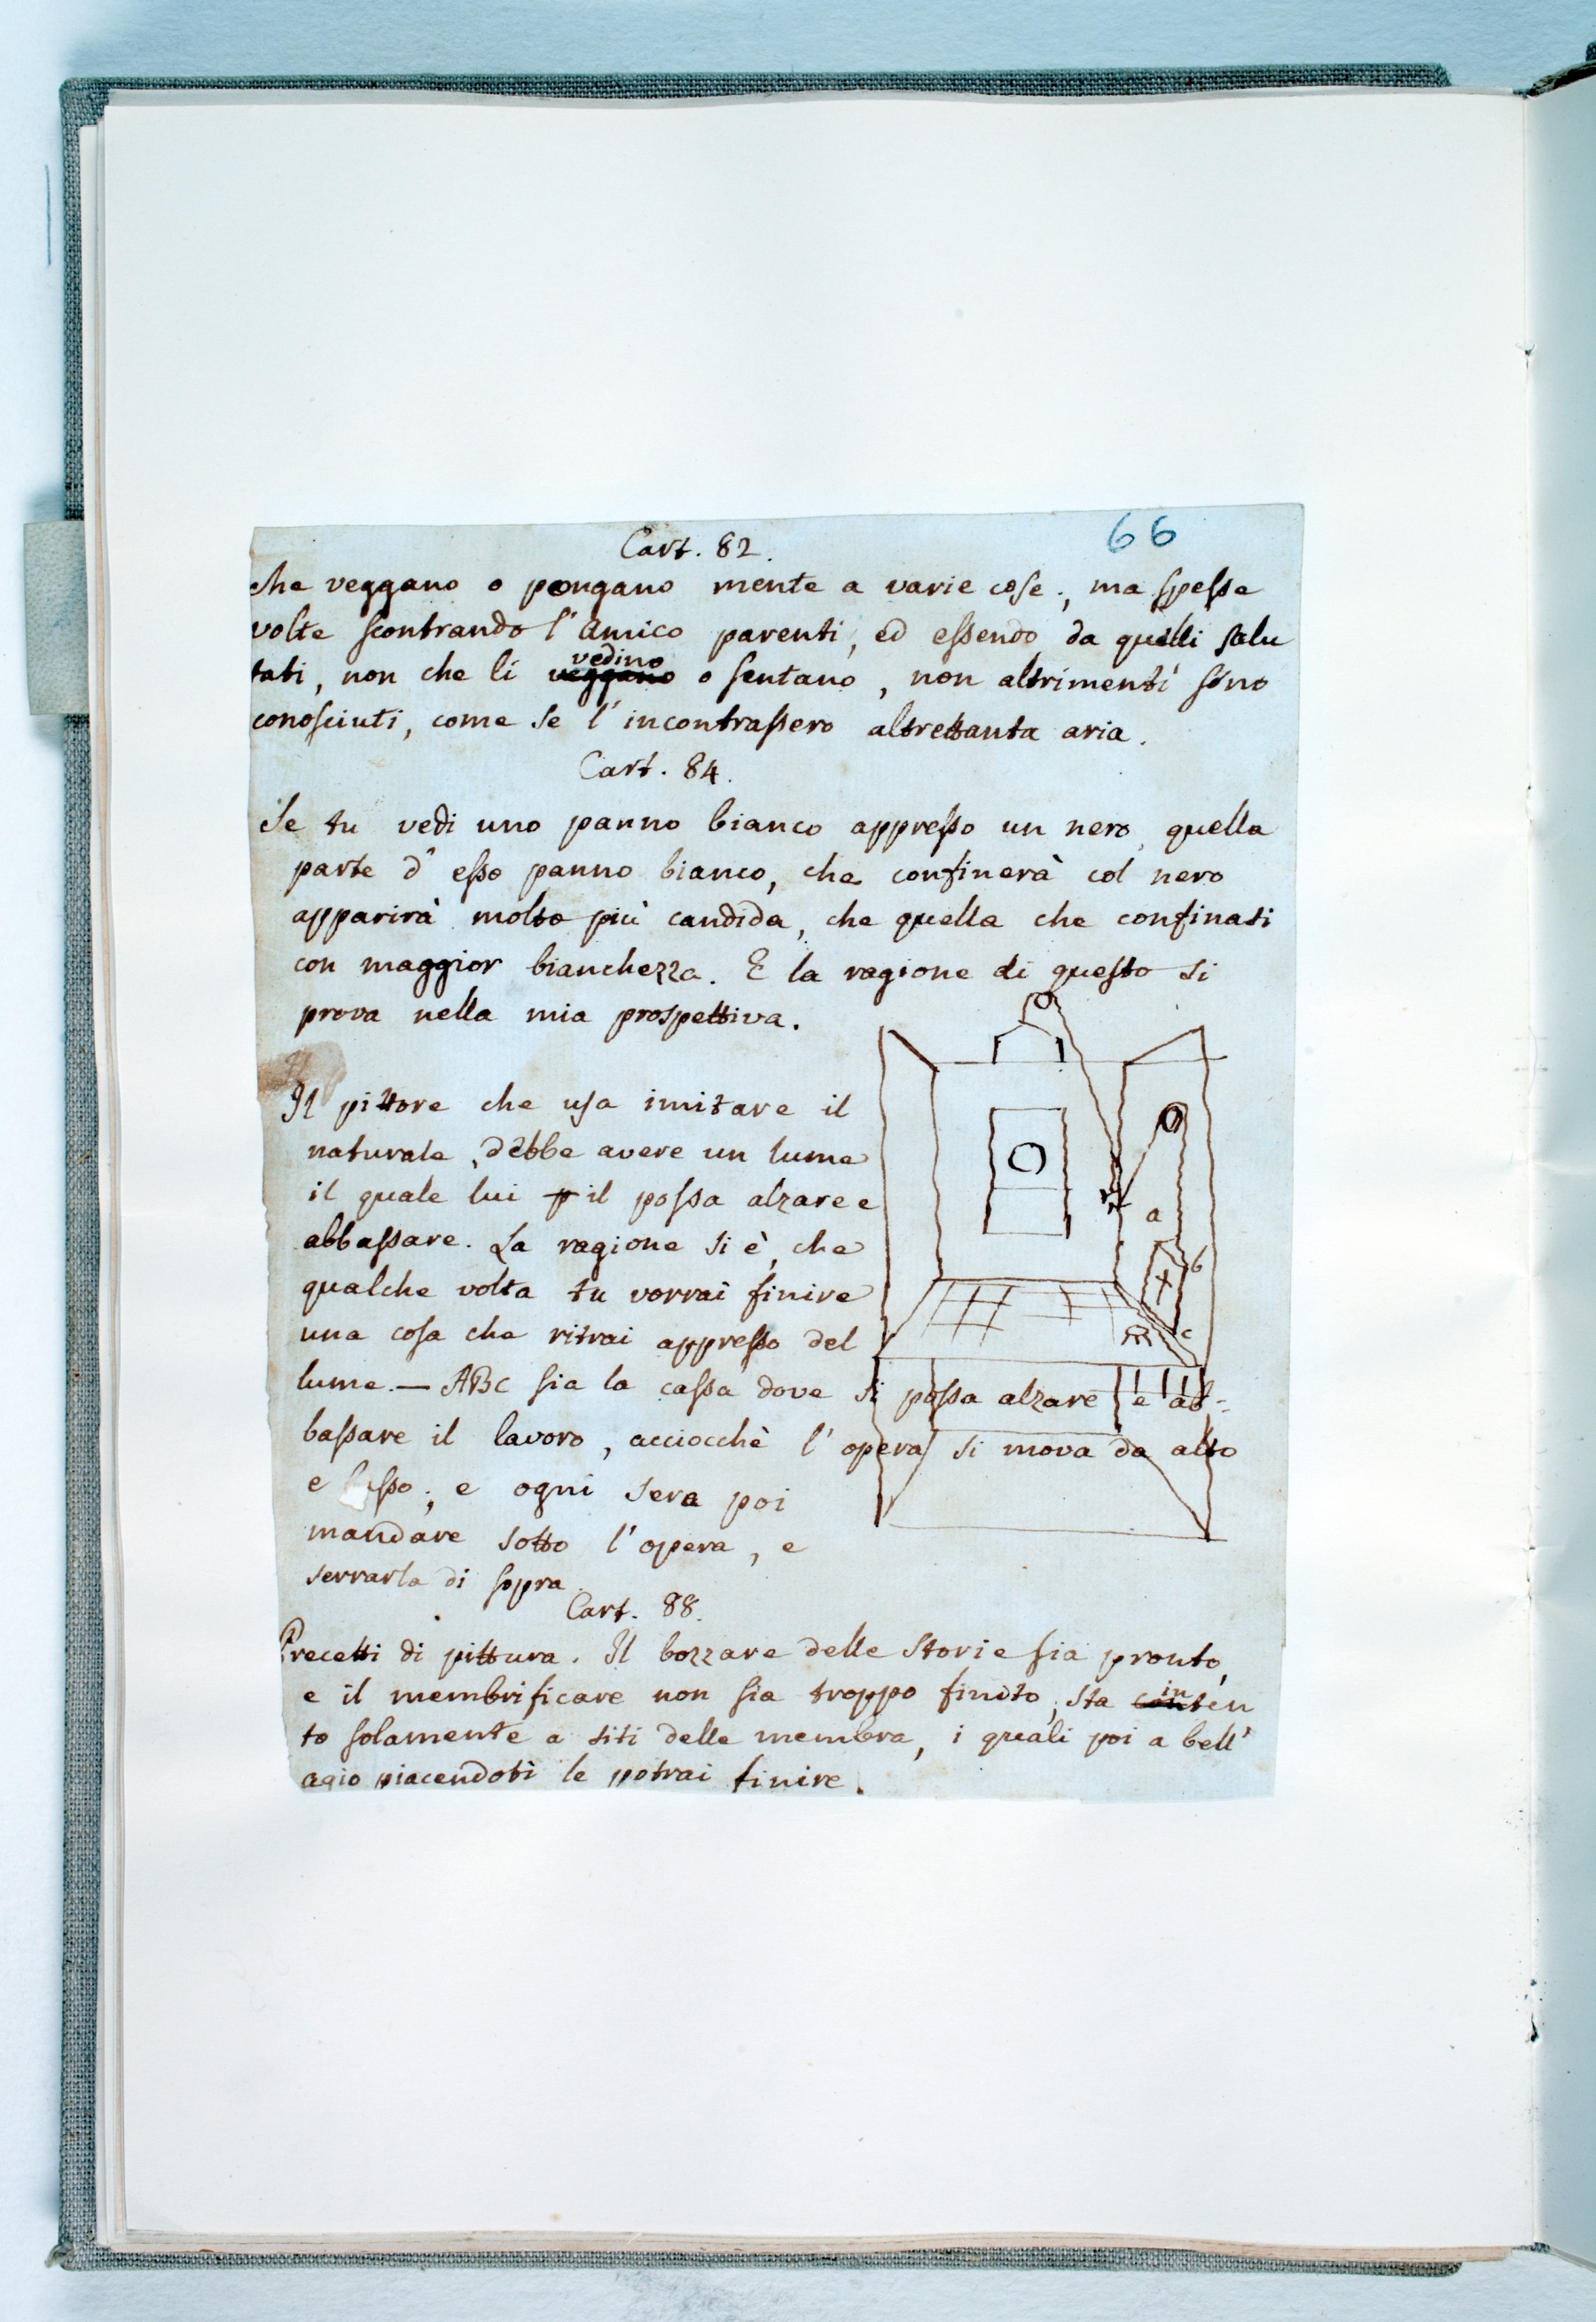 66
Cart. 82.
che veggano o pongano mente a varie cose, ma spesse
volte scontrando l'amico parenti, ed essendo da quelli salu
tati, non che li vedino veggano o sentano, non altrimenti sono
conosciuti, come se l'incontrassero altrettanta aria.
Cart. 84.
Se tu vedi uno panno bianco appresso un nero, quella
parte d'esso panno bianco, che confinerà col nero
apparirà molto più candida, che quella che confinasi
con maggior bianchezza. E la ragione di questo si
prova nella mia prospettiva.
Il pittore che usa imitare il
naturale, debbe avere un lume
il quale lui p il possa alzare e
abbassare. La ragione si è, che
qualche volta tu vorrai finire
una cosa che ritrai appresso del
lume. — ABC sia la cassa dove si possa alzare e ab-
bassare il lavoro, acciocchè l'opera si mova da alto
e basso; e ogni sera poi
mandare sotto l'opera, e
serrarla di sopra.
a
b
c
Cart. 88.
Precetti di pittura. Il bozzare delle storie sia pronto,
e il membrificare non sia troppo finito, sta in conten
to solamente a siti delle membra, i quali poi a bell'
agio piacendoti le potrai finire.